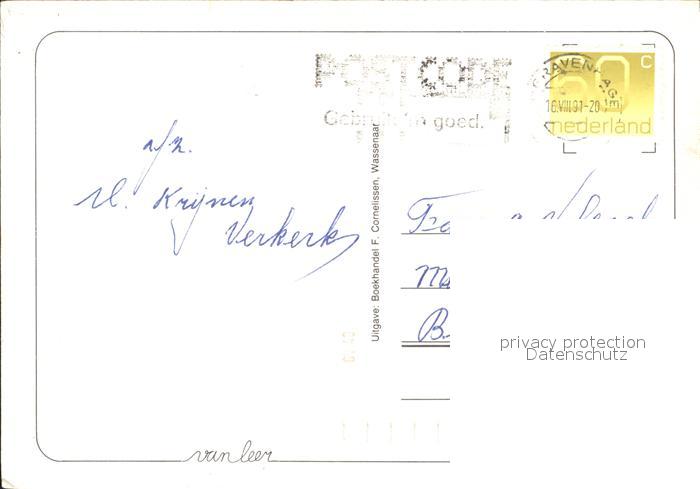 POSTCODE
Gebruik 'm goed.
GRAVENHAGE
16.VIII.91-20
60 C
nederland
a/z.
M. Krijnen
Verkerk
Uitgave: Boekhandel F. Cornelissen, Wassenaar
privacy protection
Datenschutz
van leer